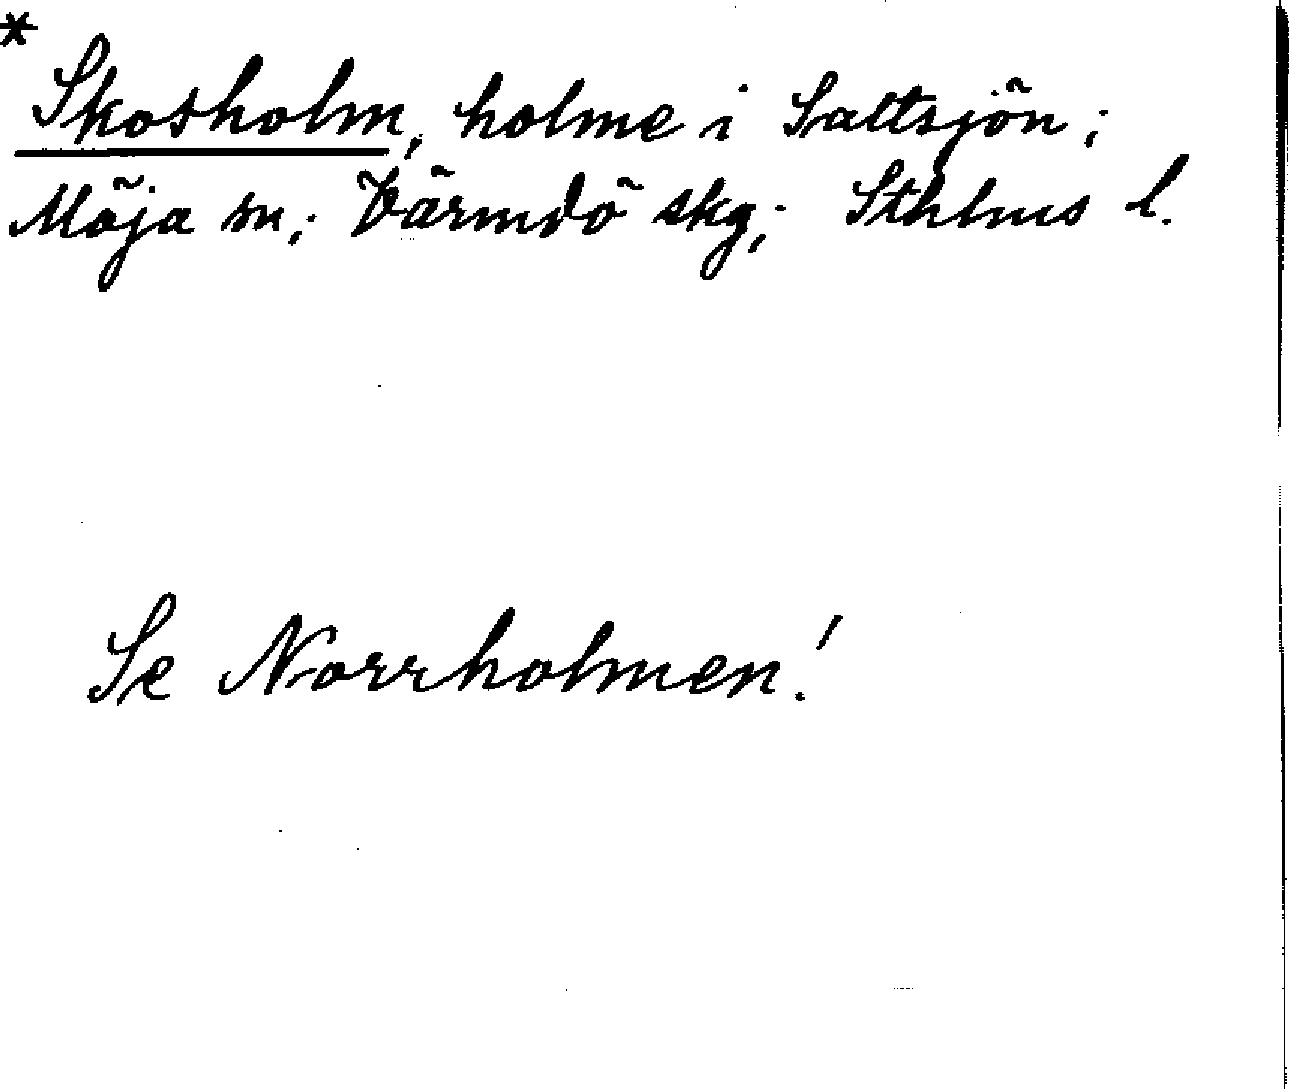 * Skosholm, holme i Saltsjön;
Möja sn; Värmdö skg; Sthlms l.
Se Norrholmen!